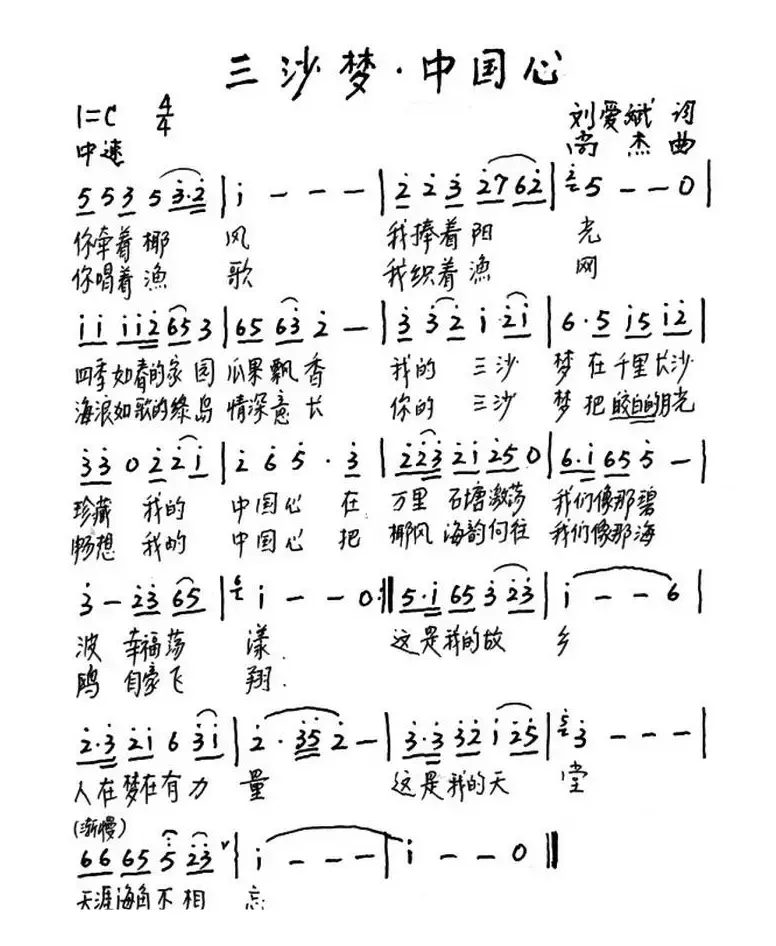 三沙梦·中国心
1=C 4/4
刘爱斌 词
中速
尚杰 曲
5 5 3 5 3·2 | i - - - | 2 2 3 2 7 6 2 | 5 - - 0 |
你牵着椰 风 我捧着阳 光
你唱着渔 歌 我织着渔 网
i i i i 2 6 5 3 | 6 5 6 3 2 - | 3 3 2 i 2 i | 6·5 i 5 i 2 |
四季如春的家园 瓜果飘香 我的 三沙 梦在千里长沙
海浪如歌的绿岛 情深意长 你的 三沙 梦把皎白的月光
3 3 0 2 2 i | 2 6 5 · 3 | 2 2 3 2 i 2 5 0 | 6·i 6 5 5 - |
珍藏 我的 中国心 在 万里 石塘激荡 我们像那碧
畅想 我的 中国心 把 椰风 海韵向往 我们像那海
3 - 2 3 6 5 | i - - 0 :|| 5·i 6 5 3 2 3 | i - - 6 |
波 幸福荡 漾. 这是我的故 乡
鸥 自豪飞 翔.
2·3 2 i 6 3 i | 2 · 3 5 2 - | 3·3 3 2 i 2 5 | 3 - - - |
人在梦在有力 量 这是我的天 堂
(渐慢)
6 6 6 5 5 2 3 v | i - - - | i - - 0 ||
天涯海角不相 忘